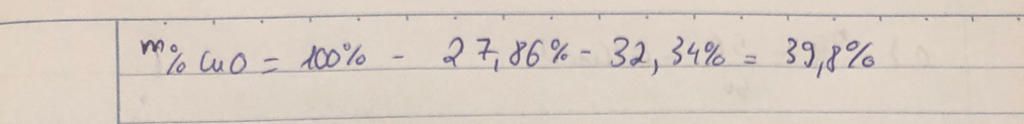 m% CuO = 100% - 27,86% - 32,34% = 39,8%